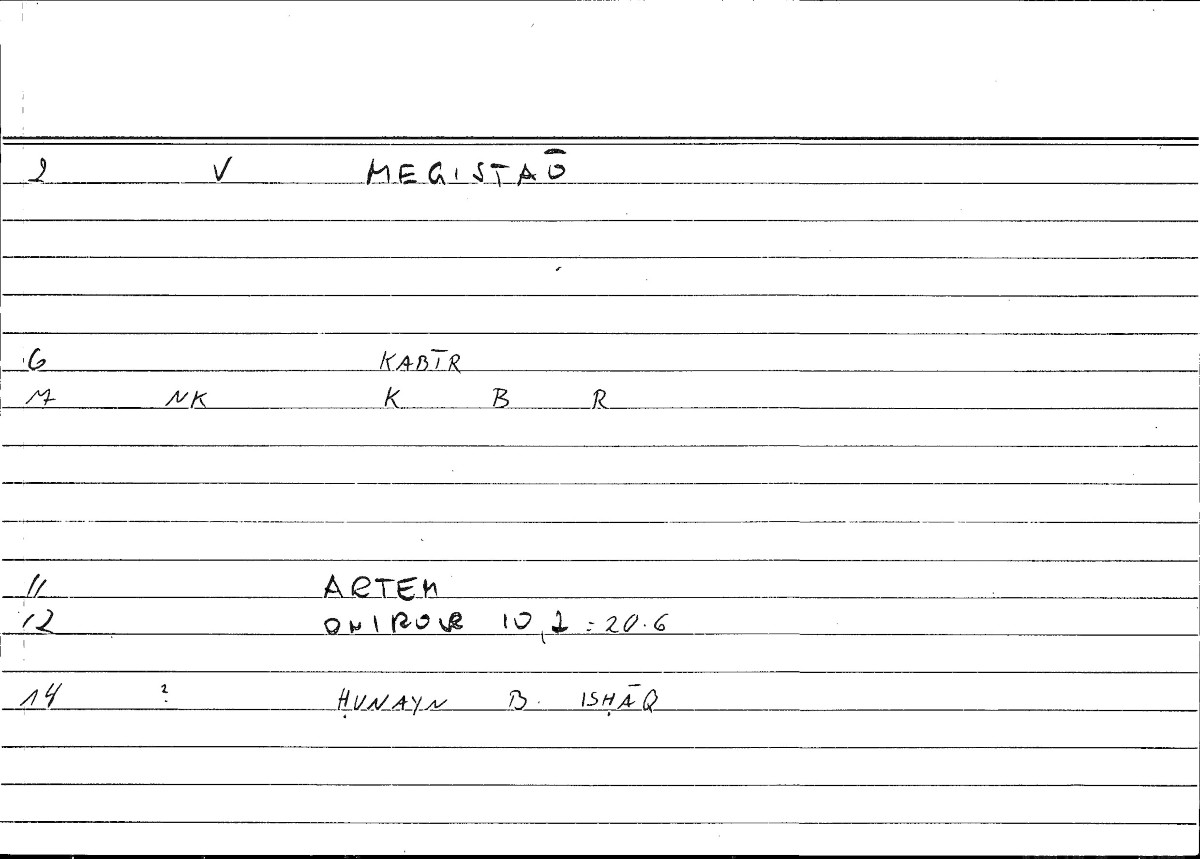 2 V MEGISTAŌ
6 KABĪR
7 NK K B R
11 ARTEM
12 ONIROCR 10,2 = 20.6
14 ? ḤUNAYN B. ISḤĀQ